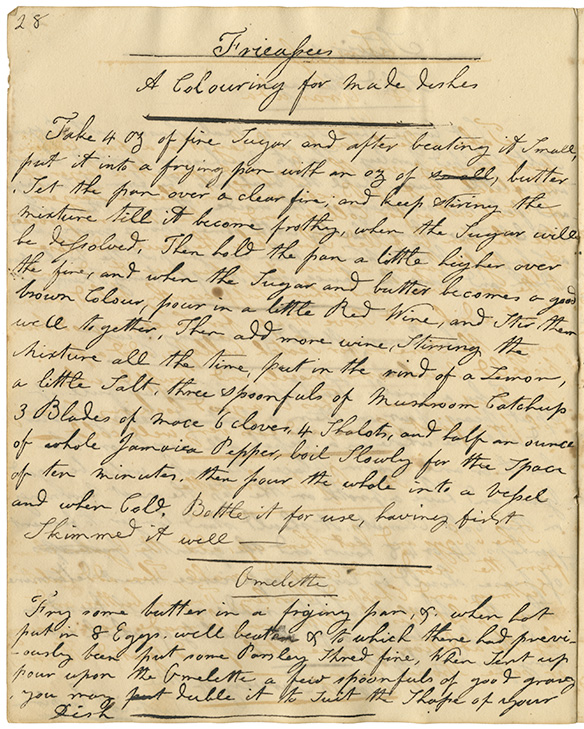 28
Fricassees
A Colouring for made dishes
Take 4 oz of fine Sugar and after beating it Small,
put it into a frying pan with an oz of small, butter
, Set the pan over a clear fire, and keep stiring the
mixture till it become frothy, when the Sugar will
be dissolved, Then hold the pan a little higher over
the fire, and when the Sugar and butter becomes a good
brown Colour, pour in a little Red Wine, and Stir them
well together, Then add more wine, Stirring the
Mixture all the time, put in the rind of a Lemon,
a little Salt, three spoonfuls of Mushroom Catchup
3 Blades of mace 6 cloves, 4 Shalots, and half an ounce
of whole Jamaica Pepper, boil Slowly for the Space
of ten minutes, then pour the whole into a Vessel
and when Cold, Bottle it for use, having first
Skimmed it well —
Omelette
Fry some butter in a frying pan, &. when hot
put in 8 Eggs. well beaten & to which there had previ-
-ously been put some Parsley Shred fine, When Sent up
pour upon the Omelette a few spoonfuls of good gravy
, you may put duble it to Suit the Shape of your
Dish